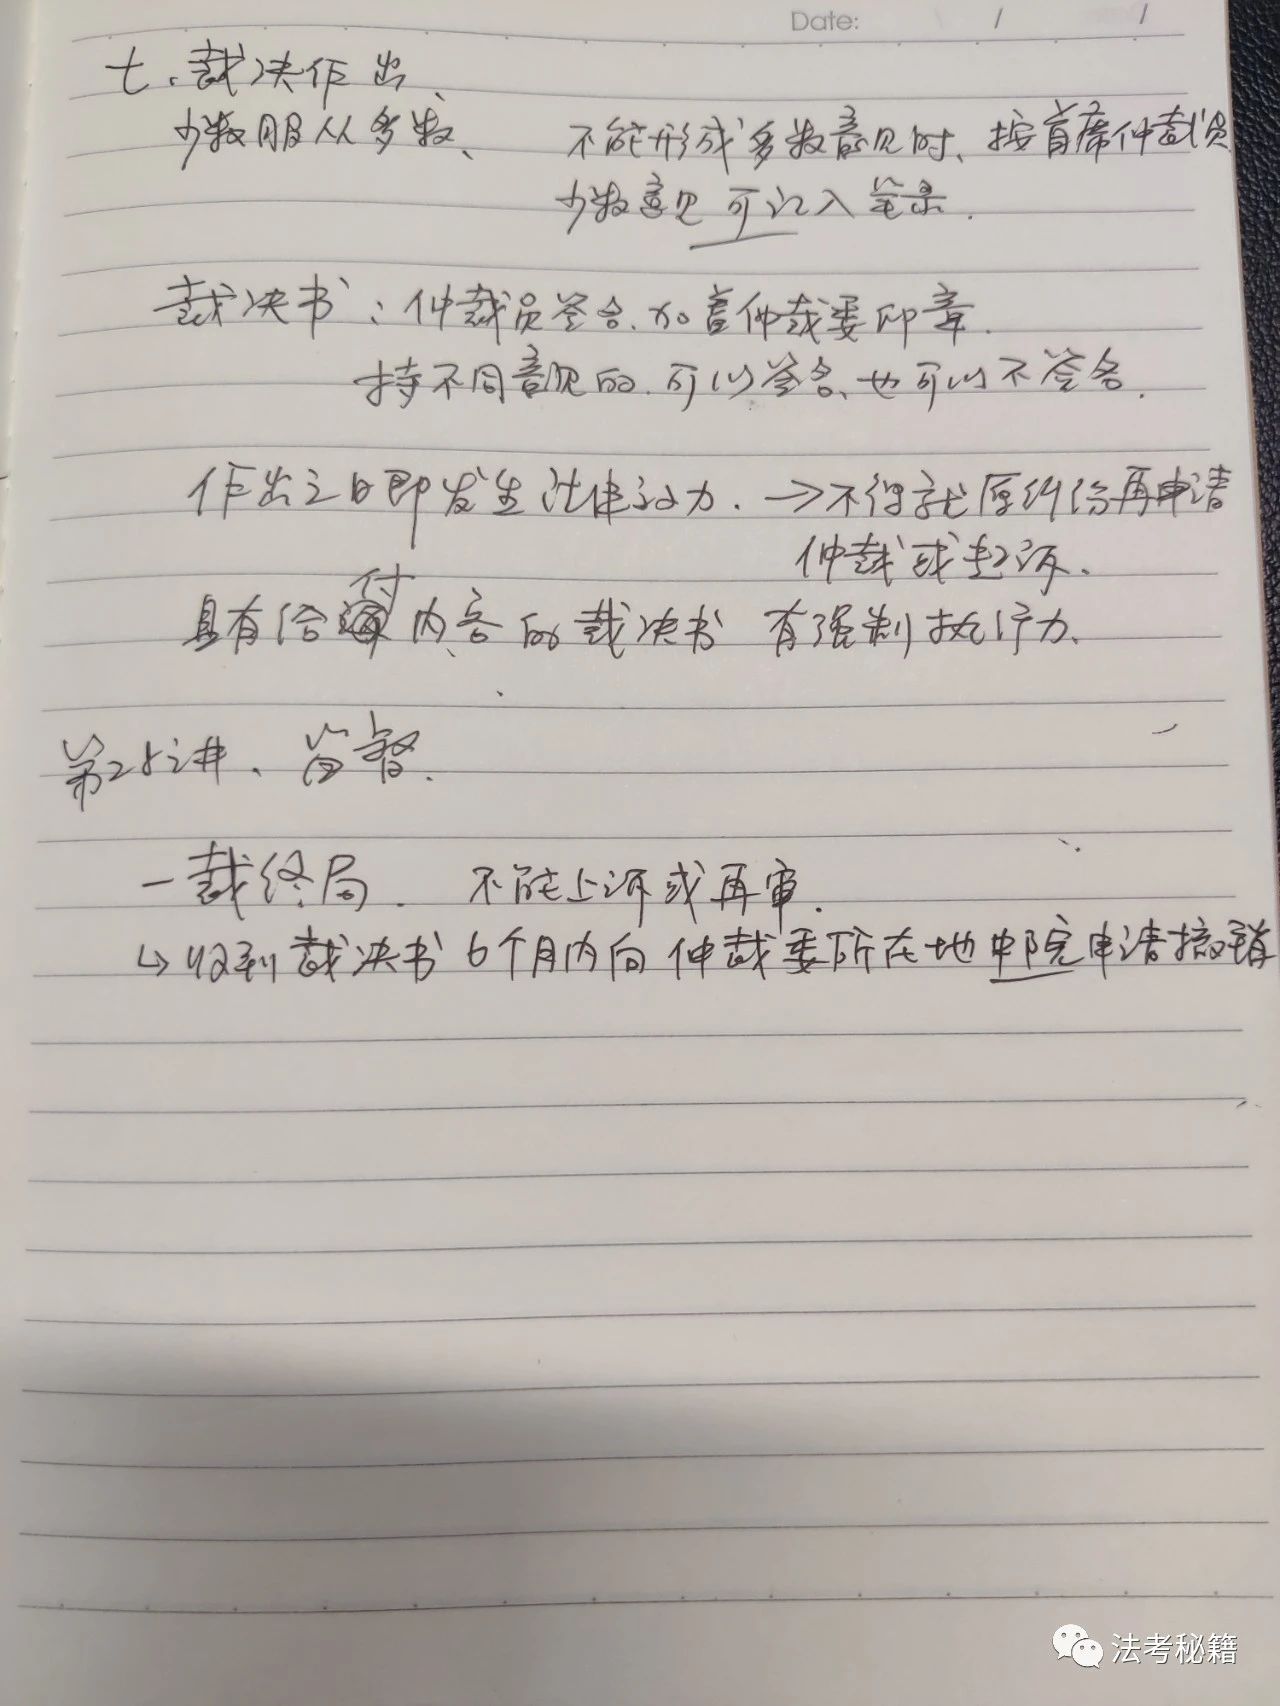 Date: / /
七、裁决作出、
少数服从多数、 不能形成多数意见时、按首席仲裁员
少数意见可记入笔录.
裁决书：仲裁员签名、加盖仲裁委印章.
持不同意见的.可以签名、也可以不签名.
作出之日即发生法律效力. →不得就原纠纷再申请
仲裁或起诉.
具有给付内容的裁决书 有强制执行力.
第25讲、监督.
一裁终局. 不能上诉或再审.
↳收到裁决书6个月内向仲裁委所在地中院申请撤销
法考秘籍